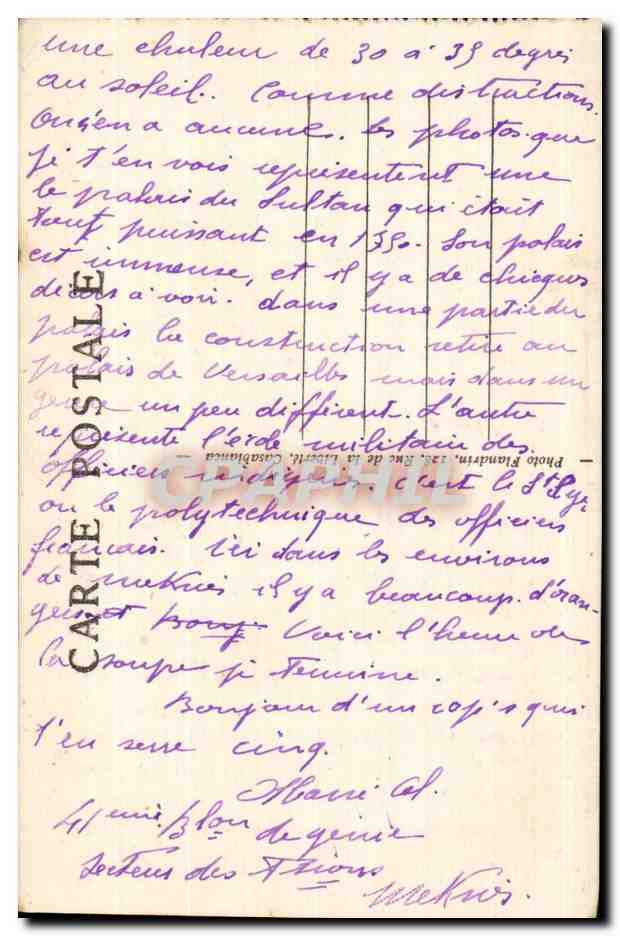 une chaleur de 30 à 35 degrés
au soleil. Comme distractions.
On s'en a aucunes. les photos que
je t'en vois représentent une
le palais du Sultan qui était
tout puissant en Son palais
est immense, et il y a de chiques
à voir. dans une partie du
palais la construction retire au
palais de Versailles mais dans un
genre un peu différent. L'autre
représente l'école militaire des
officiers c'est le St Cyr
ou le polytechnique des officiers
français. Ici dans les environs
de Meknès il y a beaucoup d'oran-
Voici l'heure de
la soupe je termine.
Bonjour d'un cop's qui
t'en serre cinq.
41eme Blon de génie
Secteur des Tsions
Meknès.
CARTE POSTALE
— Photo Flandrin, 128, Rue de la Liberté, Casablanca —
CPAPHIL